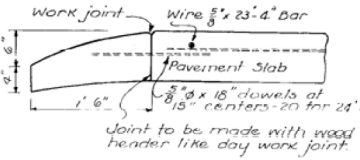 Work joint
Wire 5/8" x 23'-4" Bar
6"
4"
Pavement Slab
5/8" φ x 18" dowels at
15" centers-20 for 24'
1' 6"
Joint to be made with wood
header like day work joint.